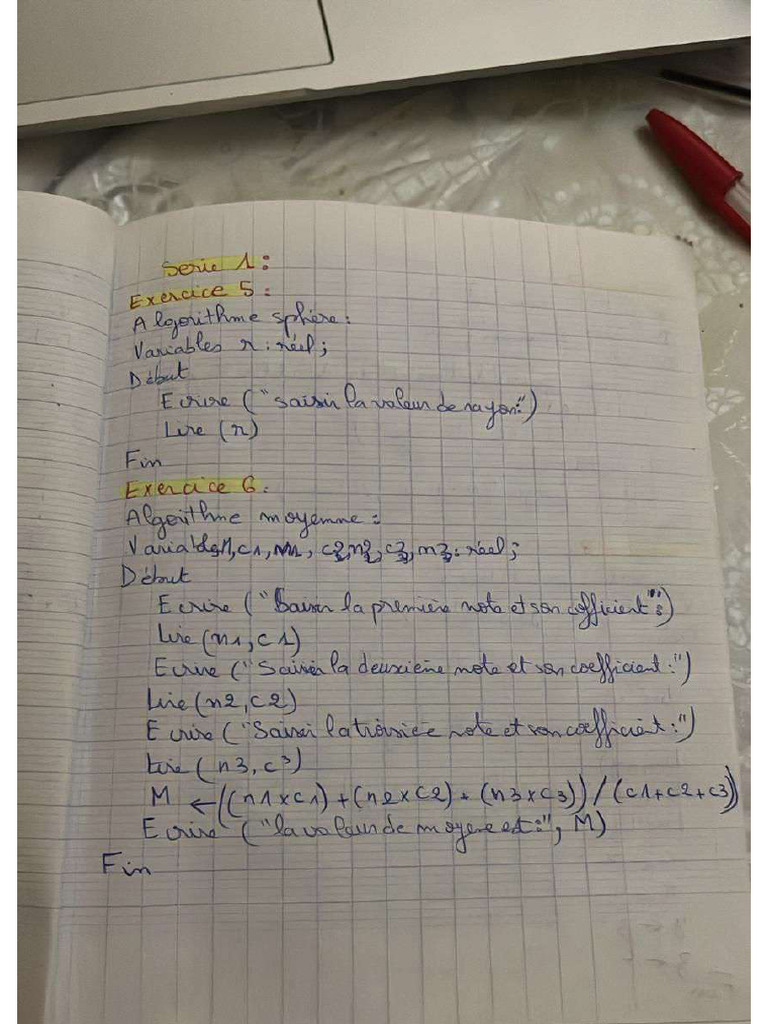 Serie 1:
Exercice 5:
Algorithme sphère:
Variables r: réel;
Début
Ecrire ("saisir la valeur de rayon:")
Lire (r)
Fin
Exercice 6:
Algorithme moyenne:
c1, n1, c2, n2, c3, n3: réel;
Début
Ecrire ("Saisir la première note et son cofficient":)
Lire (n1, c1)
Ecrire ("Saisir la deuxième note et son coefficient:")
Lire (n2, c2)
Ecrire ("Saisir la note et son coefficient:")
Lire (n3, c3)
M ← ((n1 x c1) + (n2 x c2) + (n3 x c3)) / (c1+c2+c3)
Ecrire ("la valeur de est:", M)
Fin